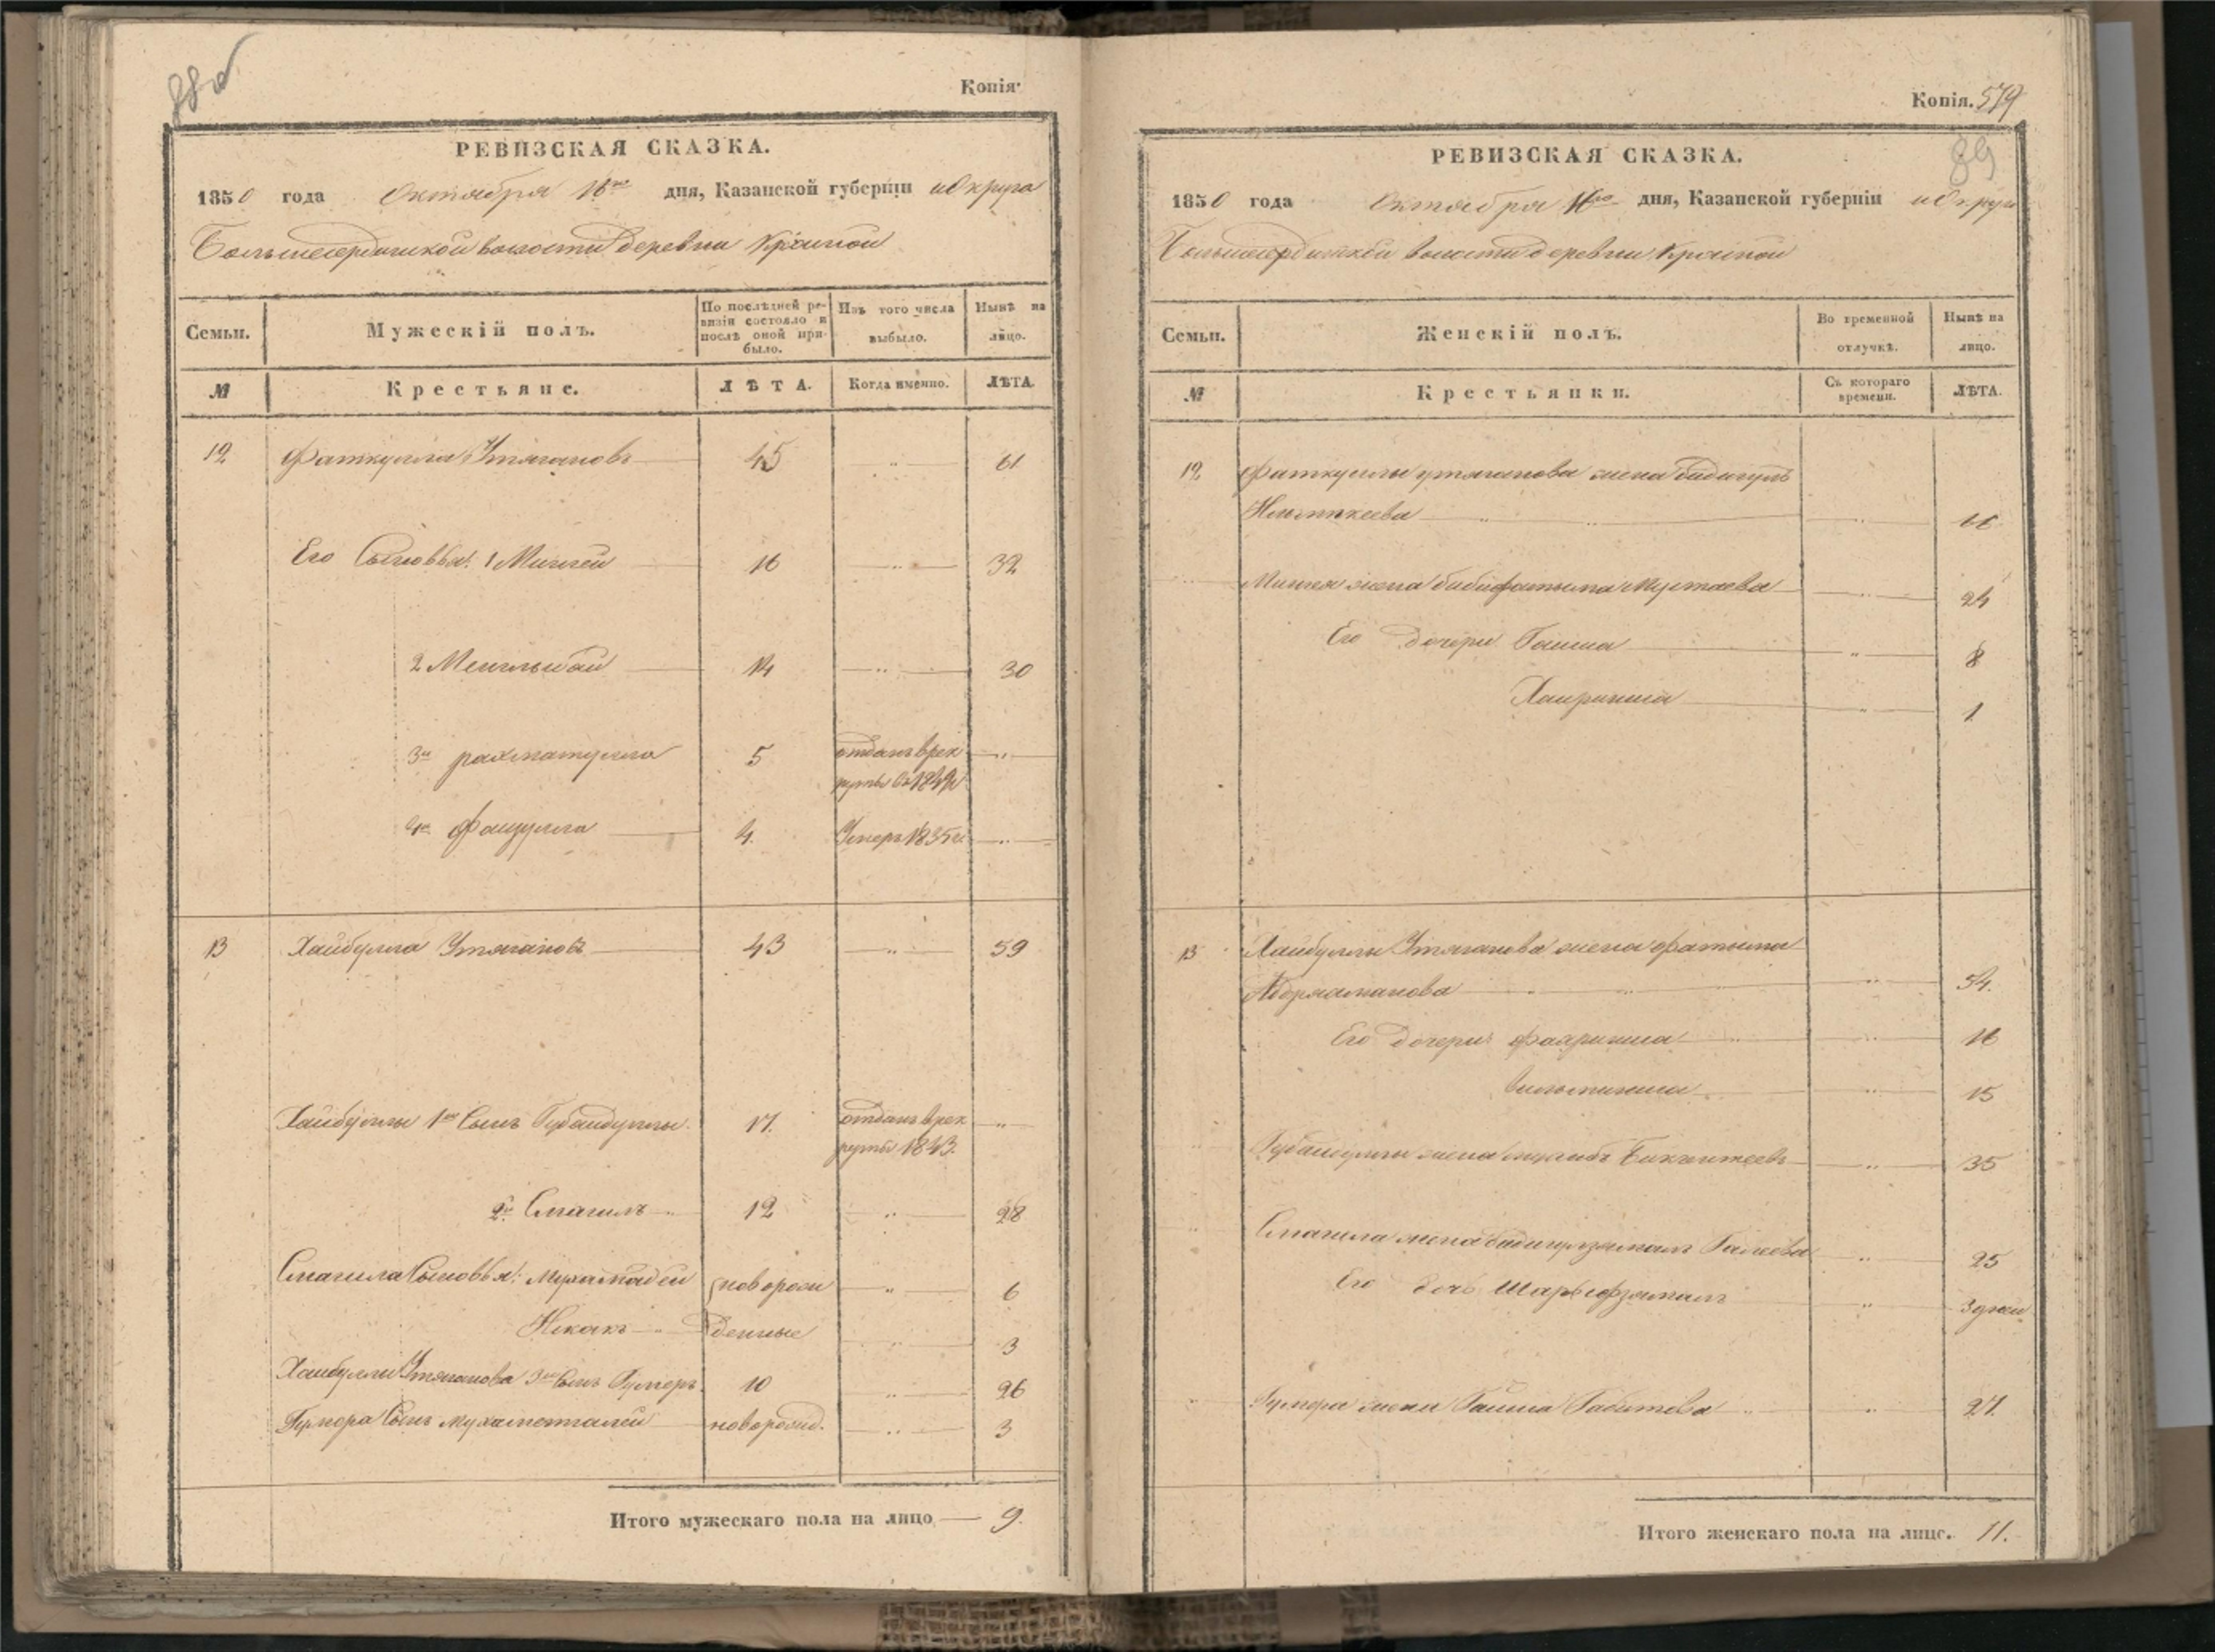 88об
Копія.
РЕВИЗСКАЯ СКАЗКА.
1850 года Октября 16го дня, Казанской губерніи и Округа
Большесердинской волости деревни Крайной
Семьи.
Мужескій полъ.
По послѣдней ре-
визіи состояло и
послѣ оной при-
было.
Изъ того числа
выбыло.
Нынѣ на
лицо.
№
Крестьяне.
ЛѢТА.
Когда именно.
ЛѢТА.
12 Фаткулла Утягановъ 45 61
Его Сыновья: 1 Мингей 16 32
2 Менглыбай 14 30
3й рахматулла 5 отданъ врек
руты въ 1849
4й Файзулла 4. Умеръ 1835 г.
13 Хайбулла Утягановъ 43 59
Хайбуллы 1й Сынъ Губайдуллы 17. отданъ врек
руты 1843.
2й Смагилъ 12 28
Смагила Сыновья: Мухамадей новорож 6
денные 3
Хайбуллы Утяганова 3й Сынъ Гумеръ 10 26
Гумера Сынъ Мухаметгалей новорожд. 3
Итого мужескаго пола на лицо 9.
Копія. 579
89
РЕВИЗСКАЯ СКАЗКА.
1850 года Октября 16го дня, Казанской губерніи и Округа
Большесердинской волости деревни Крайной
Семьи.
Женскій полъ.
Во временной
отлучкѣ.
Нынѣ на
лицо.
№
Крестьянки.
Съ котораго
времени.
ЛѢТА.
12 Фаткуллы утяганова жена бибигуль
Мингея жена бибифатыма Мустаева 24
Его дочери Гайша 8
Хайриниса 1
13 Хайбуллы Утяганова жена фатыма
Абдряшманова 54.
Его дочери: фахриниса 16
15
Губайдуллы жена 35
Смагила жена бибигулзямалъ Галеева 25
Его дочь Шарыфзямалъ 3 дней
Гумера жена Гайша Габитова 27.
Итого женскаго пола на лицо. 11.